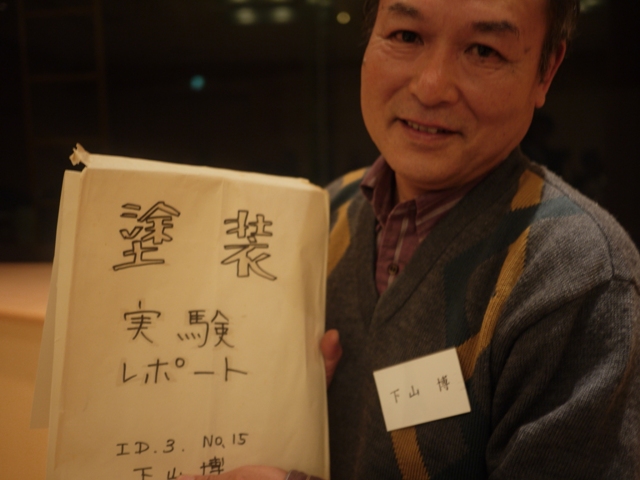 塗装
実験
レポート
ID.3. No.15
下山 博
下山 博